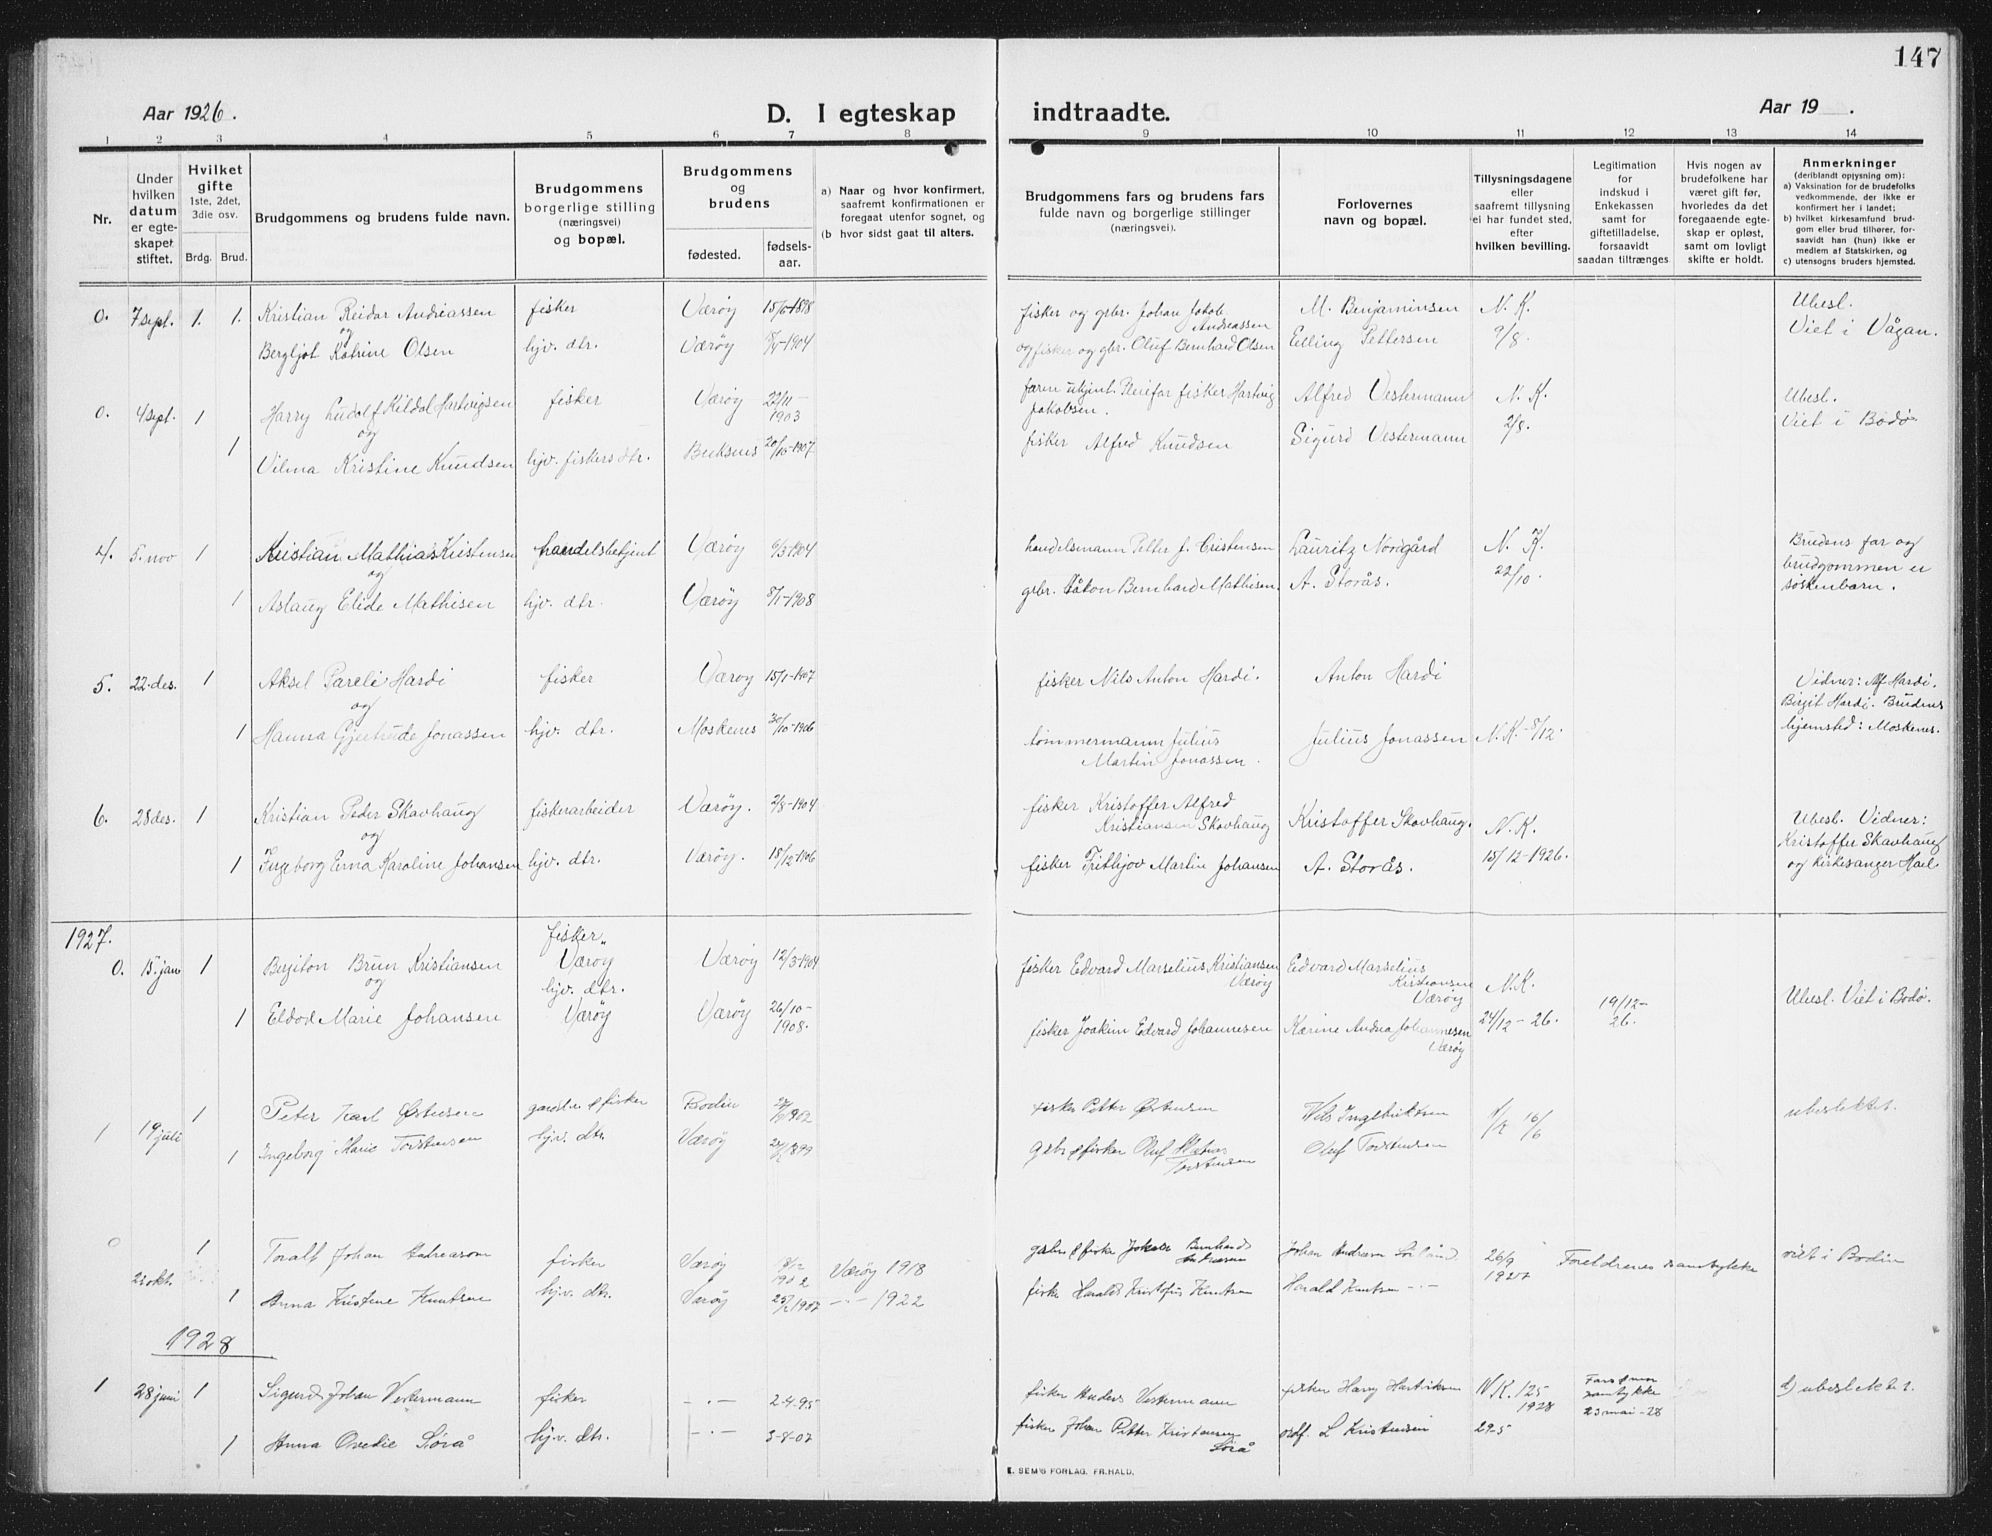 147
Aar 1926.
D. I egteskap indtraadte.
Aar 19 .
1 2 3 4 5 6 7 8 9 10 11 12 13 14
Nr.
Under hvilken datum er egteskapet stiftet.
Hvilket gifte
1ste, 2det, 3die osv.
Brdg. Brud.
Brudgommens og brudens fulde navn.
Brudgommens borgerlige stilling (næringsvei) og bopæl.
Brudgommens og brudens
fødested. fødsels-aar.
a) Naar og hvor konfirmert, saafremt konfirmationen er foregaat utenfor sognet, og
(b hvor sidst gaat til alters.
Brudgommens fars og brudens fars
fulde navn og borgerlige stillinger
(næringsvei).
Forlovernes
navn og bopæl.
Tillysningsdagene
eller
saafremt tillysning
ei har fundet sted,
efter
hvilken bevilling.
Legitimation
for
indskud i
Enkekassen
samt for
giftetilladelse,
forsaavidt
saadan tiltrænges
Hvis nogen av
brudefolkene har
været gift før,
hvorledes da det
foregaaende egte-
skap er opløst,
samt om lovligt
skifte er holdt.
Anmerkninger
(deriblandt opjysning om):
a) Vaksination for de brudefolks
vedkommende, der ikke er
konfirmert her i landet;
b) hvilket kirkesamfund brud-
gom eller brud tilhører, for-
saavidt han (hun) ikke er
medlem af Statskirken, og
c) utensogns bruders hjemsted.
0. 7 sept. 1. 1. Kristian Reidar Andreassen fisker Værøy 1898 fisker og gbr. Johan Jakob Andreassen M. Benjaminsen N. K. Ubesl.
og
Bergljot Katrine Olsen hjv. dtr. Værøy 1904 og fisker og gbr. Oluf Bernhard Olsen Elling Pettersen 9/8. Viet i Vågan.
0. 4 sept. 1 Harry Ludolf Kildal Hartvigsen fisker Værøy 22/11-1903 farm ukjent. Pleiefar fisker Hartvig Jakobsen. Alfred Vestermann N. K. Ubesl.
og 2/8. Viet i Bodø
1 Vilma Kristine Knudsen hjv. fiskers dtr. Buksnes 20/10-1907 fisker Alfred Knudsen Sigurd Vestermann
4. 5. nov 1 Kristian Mathias Kristensen handelsbetjent Værøy 6/3-1904 handelsmann Petter J. Cristensen Lauritz Nordgård N. K. Brudens far og
og 22/10. brudgommen er
1 Aslaug Elide Mathisen hjv. dtr. Værøy 1908 gbr. Håkon Bernhard Mathisen. A. Storås. søskenbarn.
5. 22. des. 1 Aksel Pareli Hardi fisker Værøy 15/1-1907 fisker Nils Anton Hardi. Anton Hardi Vidner: Alf Hardi.
og Birgit Hardi. Brudens
1 Hanna Gjertrude Jonassen hjv. dtr. Moskenes 30/10-1906 tømmermann Julius Martin Jonassen. Julius Jonassen N. K. 8/12. hjemsted: Moskenes.
6. 28 des. 1 Kristian Peder Skavhaug fiskerarbeider Værøy. 2/8-1904 fisker Kristoffer Alfred Kristiansen Skavhaug Kristoffer Skavhaug. N. K. Ubesl. Vidner:
og Kristoffer Skavhaug
1 Ingeborg Erna Karoline Johansen hjv. dtr. Værøy. 18/12-1906 fisker Frithjov Martin Johansen A. Storås. 15/12-1926. og kirkesanger Hæl.
1927.
0. 15. jan 1 Bergiton Brun Kristiansen fisker, Værøy Værøy 12/3-1904 fisker Edvard Marselius Kristiansen Værøy Edvard Marselius Kristiansen Værøy N. K.
og 19/12-26. Ubesl. Viet i Bodø.
1 Eldod Marie Johansen hjv. dtr. Værøy Værøy 26/10-1908. fisker Joakim Edvard Johannesen Karine Andrea Johannesen Værøy 24/12-26.
1 19 juli 1 Peter Karl Østensen gaardbr. & fisker Bodin 1902 fisker Petter Østensen Nils Ingebriktsen 16/6 ubeslektet.
1 Ingeborg Marie Torstensen hjv. dtr. Værøy 1899 gbr & fisker Oluf Torstensen Oluf Torstensen
0 1 Toralf Johan Andreassen fisker Værøy 1902 Værøy 1918 gbr & fisker Jakob Bernhard Andreassen Johan Andreassen Sørland 26/9 1927 Foreldrenes samtykke viet i Bodin
okt. 1 Anna Kristine Knutsen hjv. dtr. Værøy 1907 -"- 1922 fisker Harald Kristofus Knutsen Harald Knutsen -"-
1928
1 28 juni 1 Sigurd Johan Vestermann fisker -"- 2-4-95 fisker Anders Vestermann fisker Harry Hartviksen N.K. 125 1928 Fars & mor samtykke 23 mai-28 ubeslektet.
1 Anna Ovedie Sørå hjv. dtr. -"- 3-8-07 fisker Johan Petter Kristensen Sørå ordf. L Kristensen 29-5
E. SEM'S FORLAG, FR.HALD.